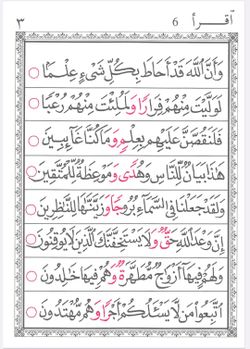 ٣ 6 اقرأ
وَأَنَّ ٱللَّهَ قَدْ أَحَاطَ بِكُلِّ شَىْءٍ عِلْمًا
لَوَلَّيْتَ مِنْهُمْ فِرَارًا وَلَمُلِئْتَ مِنْهُمْ رُعْبًا
فَلَنَقُصَّنَّ عَلَيْهِم بِعِلْمٍ وَمَا كُنَّا غَآئِبِينَ
هَٰذَا بَيَانٌ لِّلنَّاسِ وَهُدًى وَمَوْعِظَةٌ لِّلْمُتَّقِينَ
وَلَقَدْ جَعَلْنَا فِى ٱلسَّمَآءِ بُرُوجًا وَزَيَّنَّٰهَا لِلنَّٰظِرِينَ
إِنَّ وَعْدَ ٱللَّهِ حَقٌّ وَلَا يَسْتَخِفَّنَّكَ ٱلَّذِينَ لَا يُوقِنُونَ
وَلَهُمْ فِيهَآ أَزْوَٰجٌ مُّطَهَّرَةٌ وَهُمْ فِيهَا خَٰلِدُونَ
ٱتَّبِعُوا۟ مَن لَّا يَسْـَٔلُكُمْ أَجْرًا وَهُم مُّهْتَدُونَ